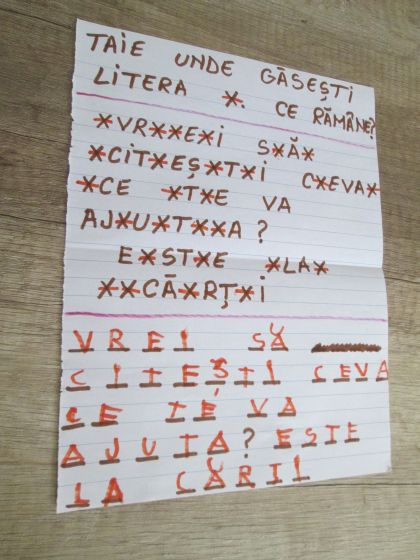 TAIE UNDE GĂSEȘTI
LITERA *. CE RĂMÂNE?
*VR**E*I S*Ă*
*CIT*EȘ*T*I C*EVA*
*CE *T*E VA
AJ*U*T**A?
E*ST*E *LA*
**CĂ*RȚ*I
VREI SĂ
CITEȘTI CEVA
CE TE VA
AJUTA? ESTE
LA CĂRȚI